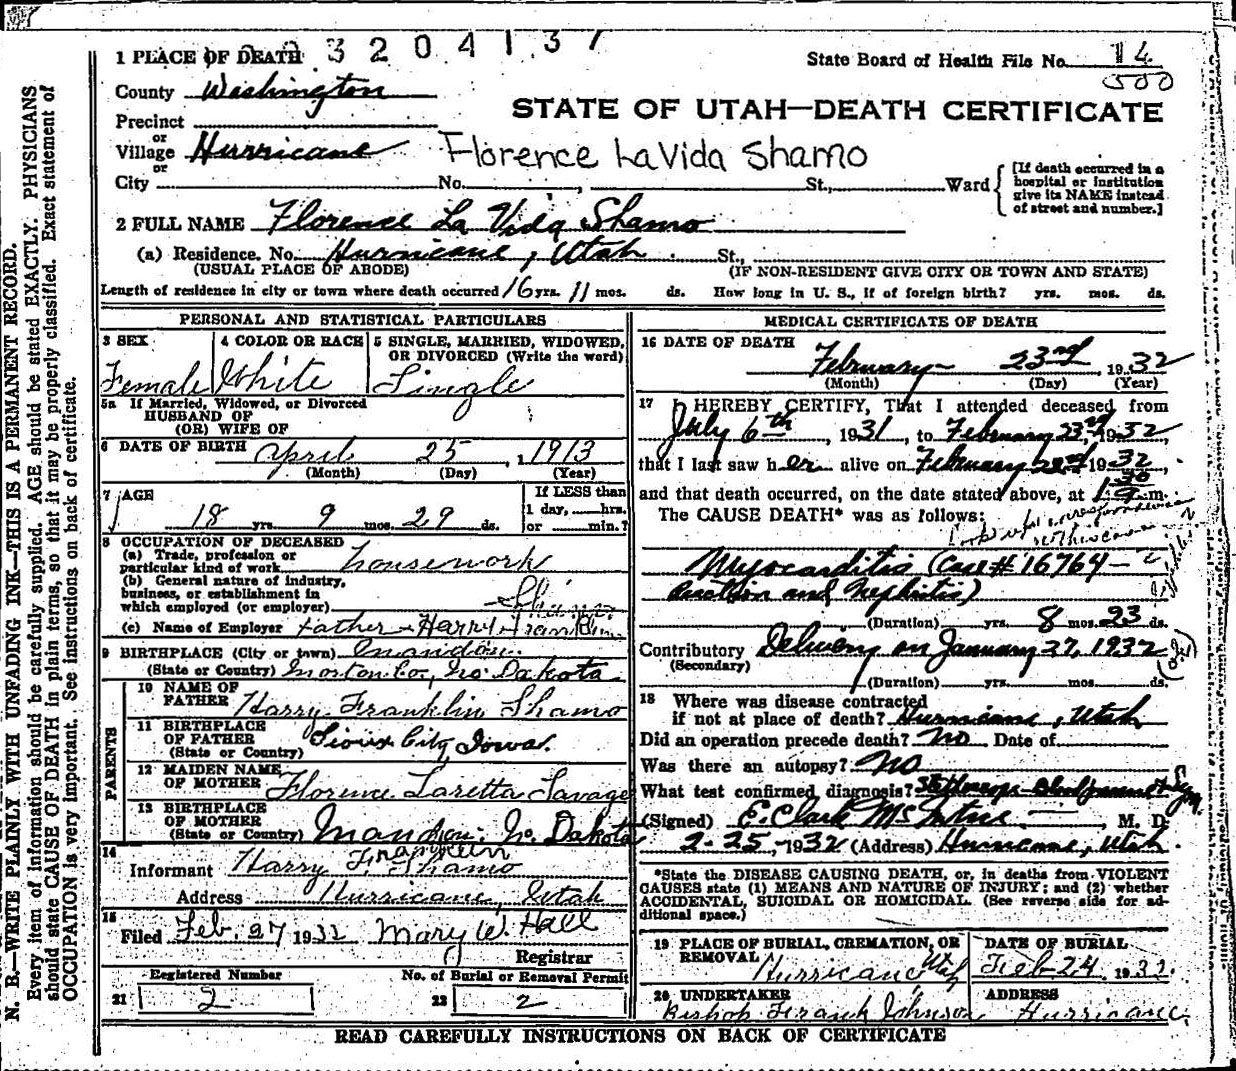 3204137
1 PLACE OF DEATH
State Board of Health File No. 14
500
County Washington
STATE OF UTAH—DEATH CERTIFICATE
Precinct
or
Village Hurricane
Florence LaVida Shamo
or
City No. , St., Ward
[If death occurred in a
hospital or institution
give its NAME instead
of street and number.]
2 FULL NAME Florence La Vida Shamo
(a) Residence. No. Hurricane, Utah. St.,
(USUAL PLACE OF ABODE) (IF NON-RESIDENT GIVE CITY OR TOWN AND STATE)
Length of residence in city or town where death occurred 16 yrs. 11 mos. ds. How long in U. S., if of foreign birth? yrs. mos. ds.
PERSONAL AND STATISTICAL PARTICULARS
3 SEX 4 COLOR OR RACE 5 SINGLE, MARRIED, WIDOWED,
OR DIVORCED (Write the word)
Female White Single
5a If Married, Widowed, or Divorced
HUSBAND OF
(OR) WIFE OF
6 DATE OF BIRTH April 25, 1913
(Month) (Day) (Year)
7 AGE
If LESS than
1 day, hrs.
or min.?
18 yrs. 9 mos. 29 ds.
8 OCCUPATION OF DECEASED
(a) Trade, profession or
particular kind of work housework
(b) General nature of industry,
business, or establishment in
which employed (or employer) Shamo
(c) Name of Employer Father - Harry Franklin
9 BIRTHPLACE (City or town) Mandan
(State or Country) Morton Co., No. Dakota
PARENTS
10 NAME OF
FATHER Harry Franklin Shamo
11 BIRTHPLACE
OF FATHER
(State or Country) Sioux City Iowa.
12 MAIDEN NAME
OF MOTHER Florence Laretta Savage
13 BIRTHPLACE
OF MOTHER
(State or Country) Mandan No. Dakota
14
Franklin
Informant Harry F. Shamo
Address Hurricane, Utah
15
Filed Feb. 27 1932 Mary W. Hall
Registrar
Registered Number No. of Burial or Removal Permit
21 2 22 2
MEDICAL CERTIFICATE OF DEATH
16 DATE OF DEATH
February 23rd 1932
(Month) (Day) (Year)
17 I HEREBY CERTIFY, That I attended deceased from
July 6th, 1931, to February 23rd, 1932
that I last saw her alive on February 22nd 1932,
and that death occurred, on the date stated above, at 1 30 a m.
The CAUSE DEATH* was as follows:
Myocarditis (Case # 16764 -
and Nephritis)
(Duration) yrs. 8 mos. 23 ds.
Contributory Delivery on January 27, 1932
(Secondary)
(Duration) yrs. mos. ds.
18 Where was disease contracted
if not at place of death? Hurricane, Utah
Did an operation precede death? No Date of
Was there an autopsy? No
What test confirmed diagnosis? Stethoscope - Blood pressure +
(Signed) E. Clark McIntire, M. D.
2-25, 1932 (Address) Hurricane, Utah.
*State the DISEASE CAUSING DEATH, or, in deaths from VIOLENT
CAUSES state (1) MEANS AND NATURE OF INJURY; and (2) whether
ACCIDENTAL, SUICIDAL OR HOMICIDAL. (See reverse side for ad-
ditional space.)
19 PLACE OF BURIAL, CREMATION, OR
REMOVAL
Hurricane Utah
DATE OF BURIAL
Feb 24 1932.
20 UNDERTAKER ADDRESS
Bishop Frank Johnson Hurricane
READ CAREFULLY INSTRUCTIONS ON BACK OF CERTIFICATE
N. B.—WRITE PLAINLY WITH UNFADING INK—THIS IS A PERMANENT RECORD.
Every item of information should be carefully supplied. AGE should be stated EXACTLY. PHYSICIANS
should state CAUSE OF DEATH in plain terms, so that it may be properly classified. Exact statement of
OCCUPATION is very important. See instructions on back of certificate.